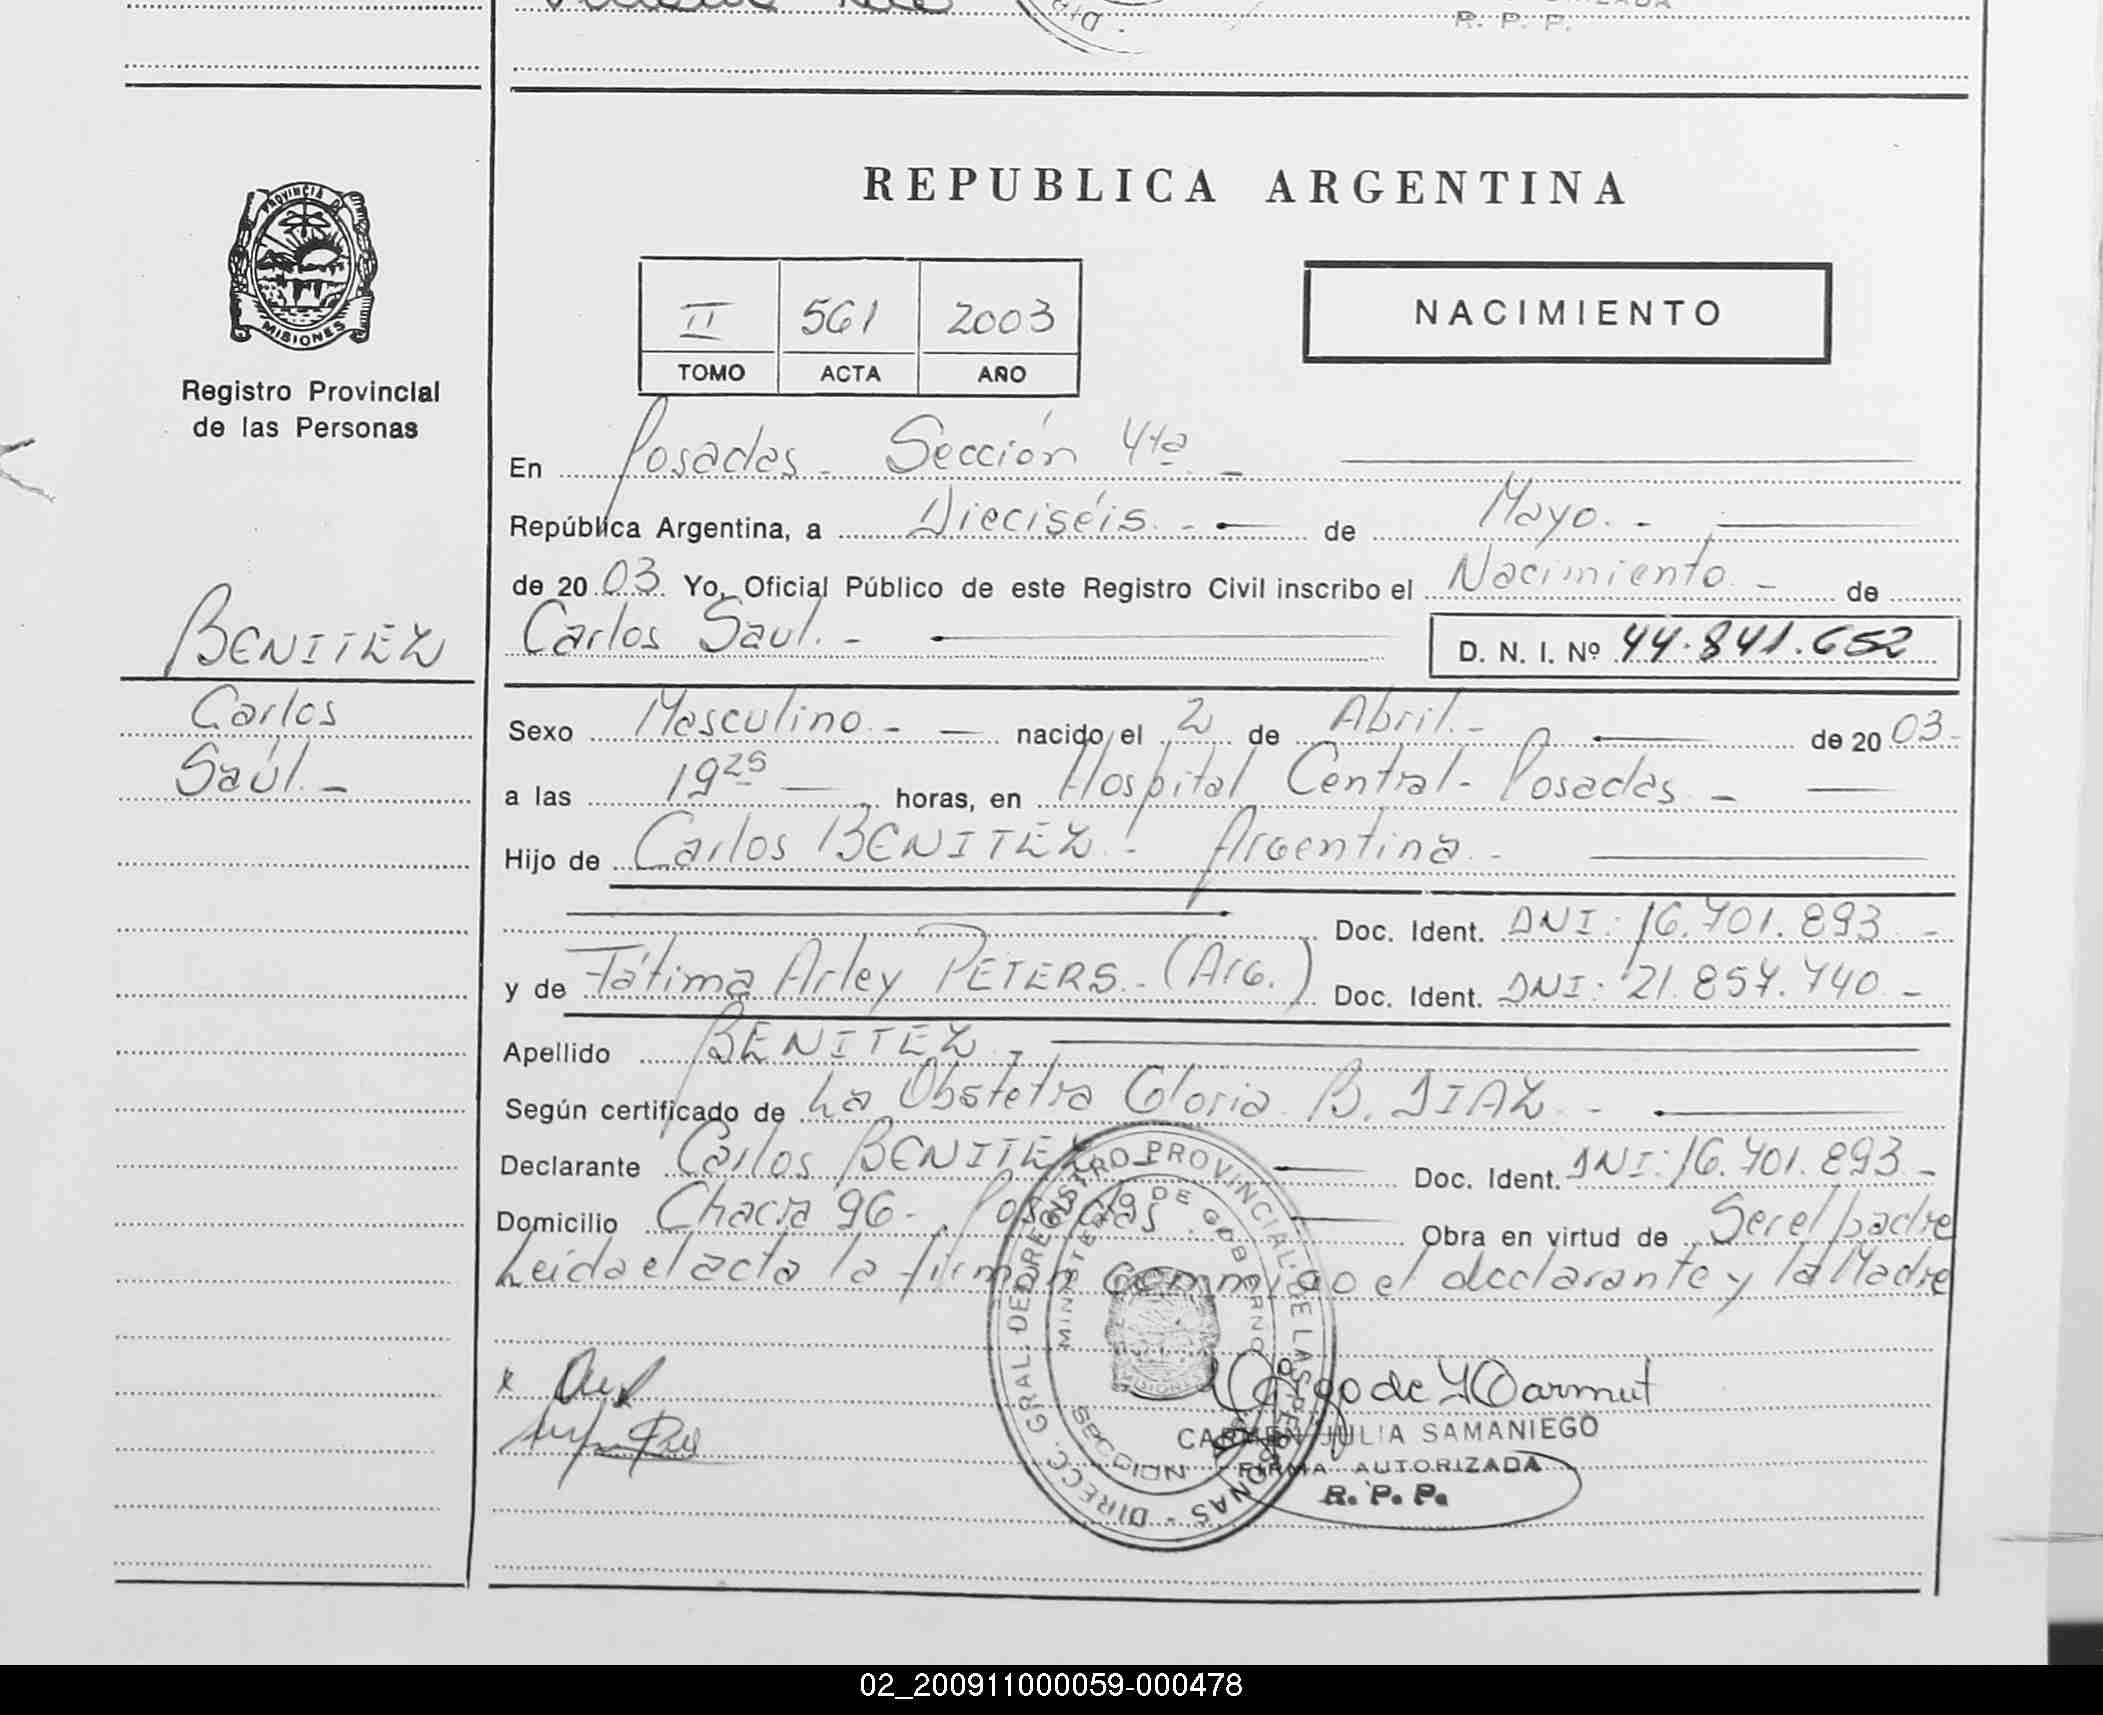 R. P. P.
PROVINCIA DE
MISIONES
Registro Provincial
de las Personas
BENITEZ
Carlos
Saúl. -
REPUBLICA ARGENTINA
II 561 2003
TOMO ACTA AÑO
NACIMIENTO
En Posadas - Sección 4ta -
República Argentina, a Dieciséis. - de Mayo. -
de 20 03 Yo, Oficial Público de este Registro Civil inscribo el Nacimiento - de
Carlos Saul. - D. N. I. Nº 44.841.652
Sexo Masculino - nacido el 2 de Abril. - de 20 03 -
a las 19 25 horas, en Hospital Central - Posadas -
Hijo de Carlos BENITEZ - Argentina -
Doc. Ident. DNI: 16.701.893 -
y de Fátima Arley PETERS. (Arg.) Doc. Ident. DNI: 21.857.740 -
Apellido BENITEZ -
Según certificado de La Obstetra Gloria B. DIAZ -
Declarante Carlos BENITEZ Doc. Ident. DNI: 16.701.893 -
Domicilio Chacra 96 - Posadas. Obra en virtud de Ser el padre
Leída el acta la firman conmigo el declarante y la Madre
DIRECC. GRAL. DE REGISTRO PROVINCIAL DE LAS PERSONAS -
MINISTERIO DE GOBIERNO
MISIONES
SECCION
CARMEN JULIA SAMANIEGO
FIRMA AUTORIZADA
R. P. P.
02_200911000059-000478